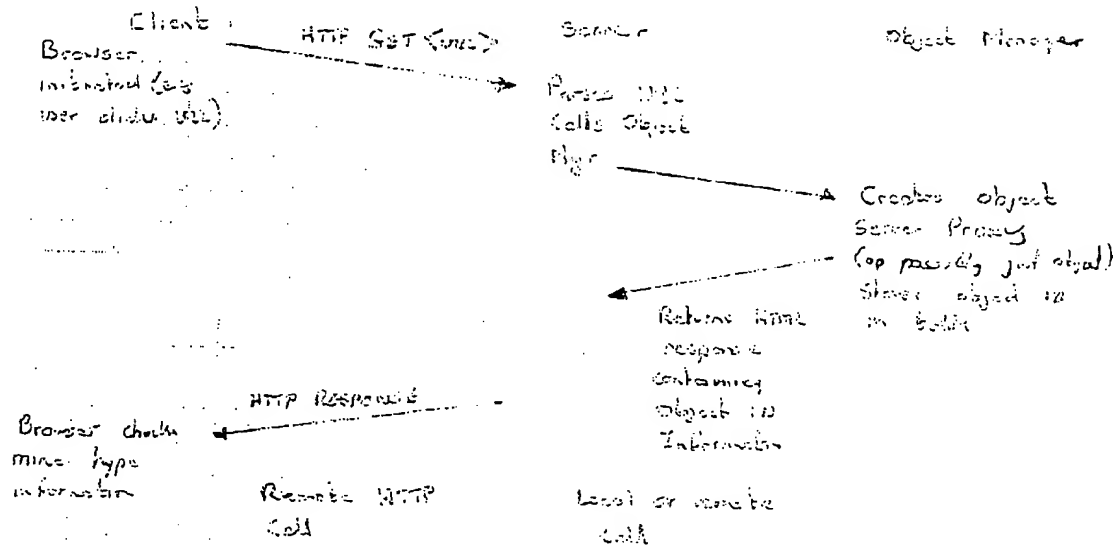 Client
HTTP GET <URL>
Server
Object Manager
Browser
user clicks URL)
Parses URL
Calls Object
Mgr
Creates object
Server Proxy
(or possibly just object)
Stores object ID
in table
Returns HTML
response
containing
Object ID
Information
HTTP RESPONSE
Browser checks
mime type
information
Remote HTTP
Call
Local or remote
call